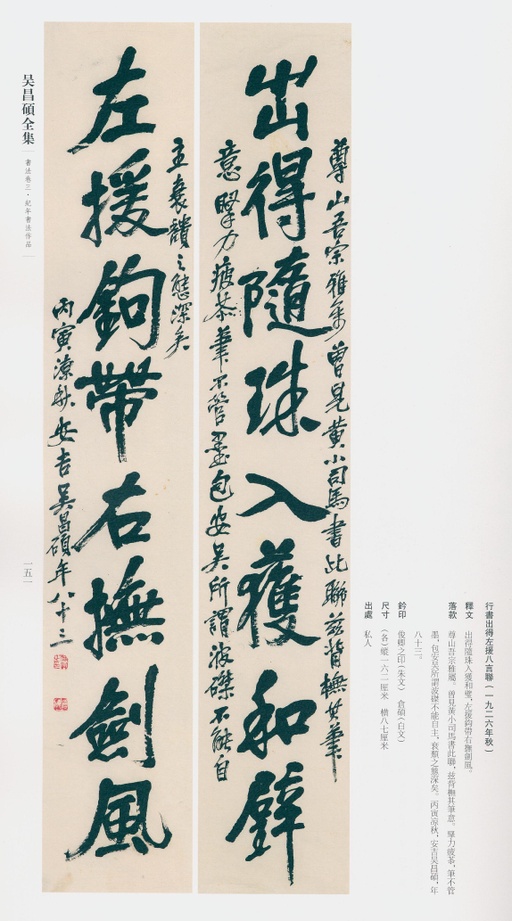 行書出得左援八言聯（一九二六年秋）
釋文 出得隨珠入獲和璧，左援鉤帶右撫劍風。
落款 尊山吾宗雅屬。曾見黃小司馬書此聯，茲背橅其筆意。擥力疲恭，筆不管
墨，包安吳所謂波磔不能自主，衰頹之態深矣。丙寅涼秋，安吉吳昌碩，年
八十三。
鈐印 俊卿之印（朱文） 倉碩（白文）
尺寸 （各）縱一六二厘米 橫八七厘米
出處 私人
尊山吾宗雅屬曾見黃小司馬書此聯茲背橅其筆
出得隨珠入獲和璧
意擥力疲恭筆不管墨包安吳所謂波磔不能自
主衰頹之態深矣
左援鉤帶右撫劍風
丙寅涼秋安吉吳昌碩年八十三
吴昌碩全集
書法卷三·紀年書法作品
一五一